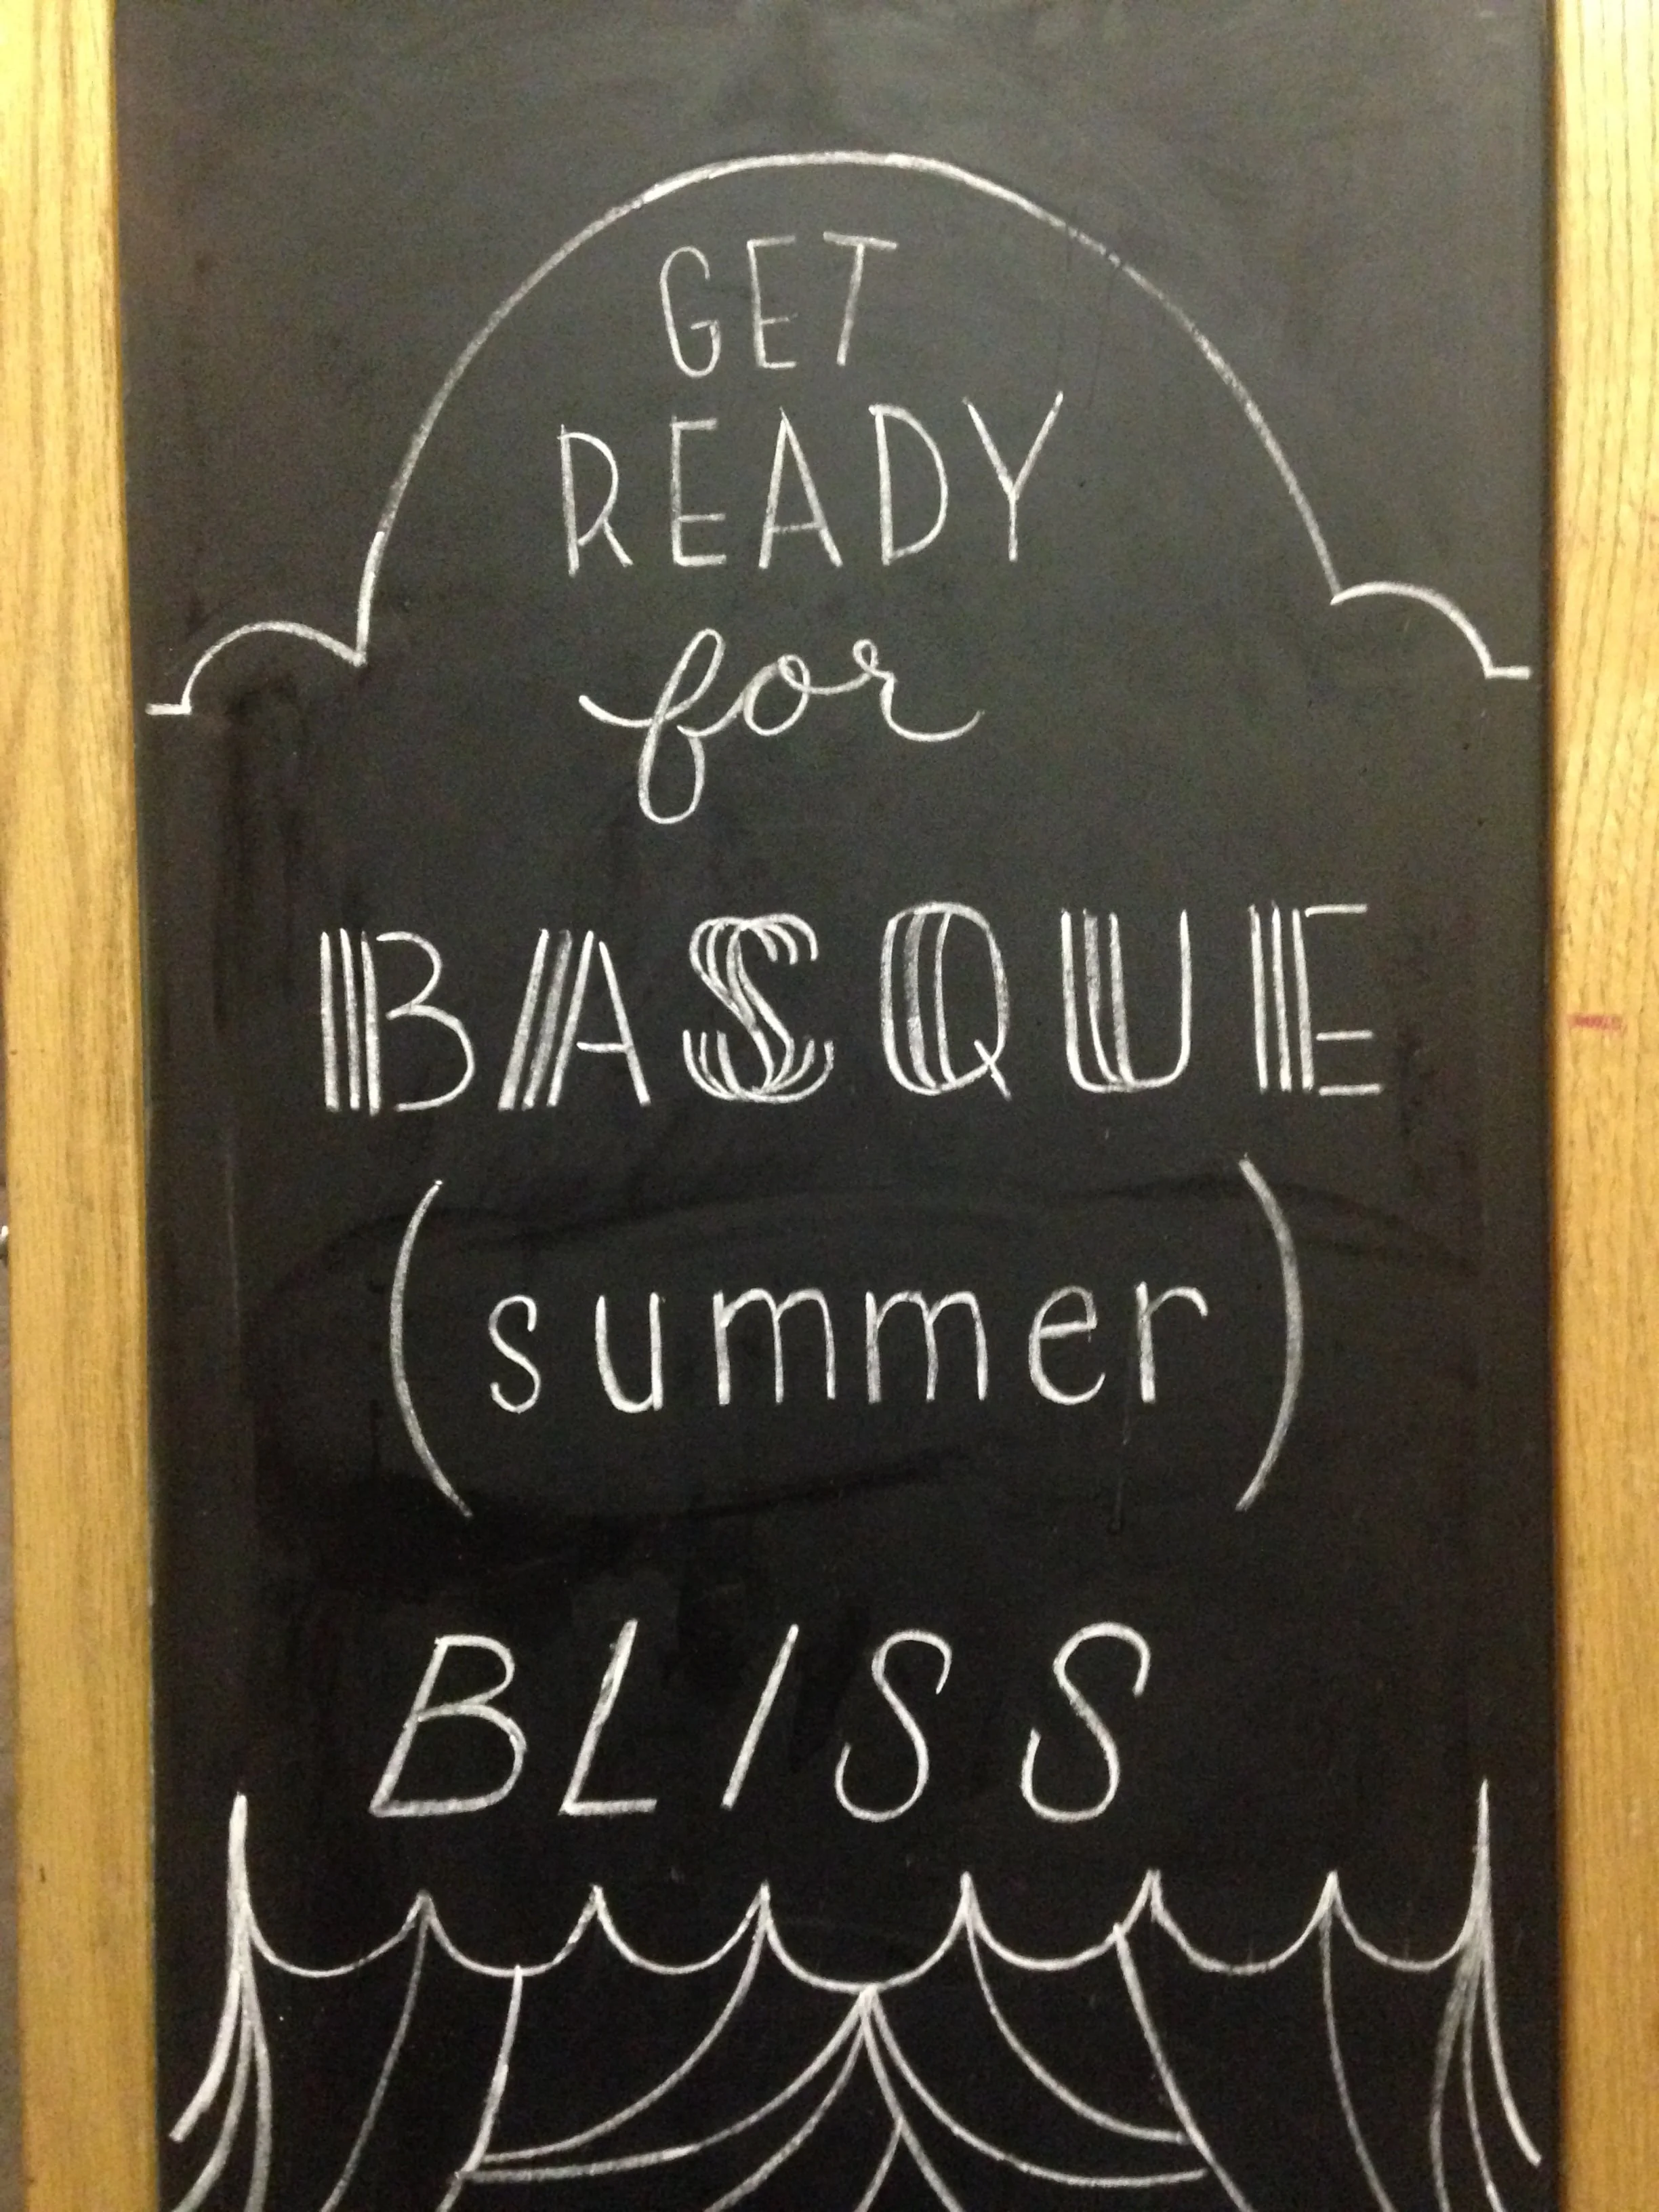 GET
READY
for
BASQUE
(summer)
BLISS